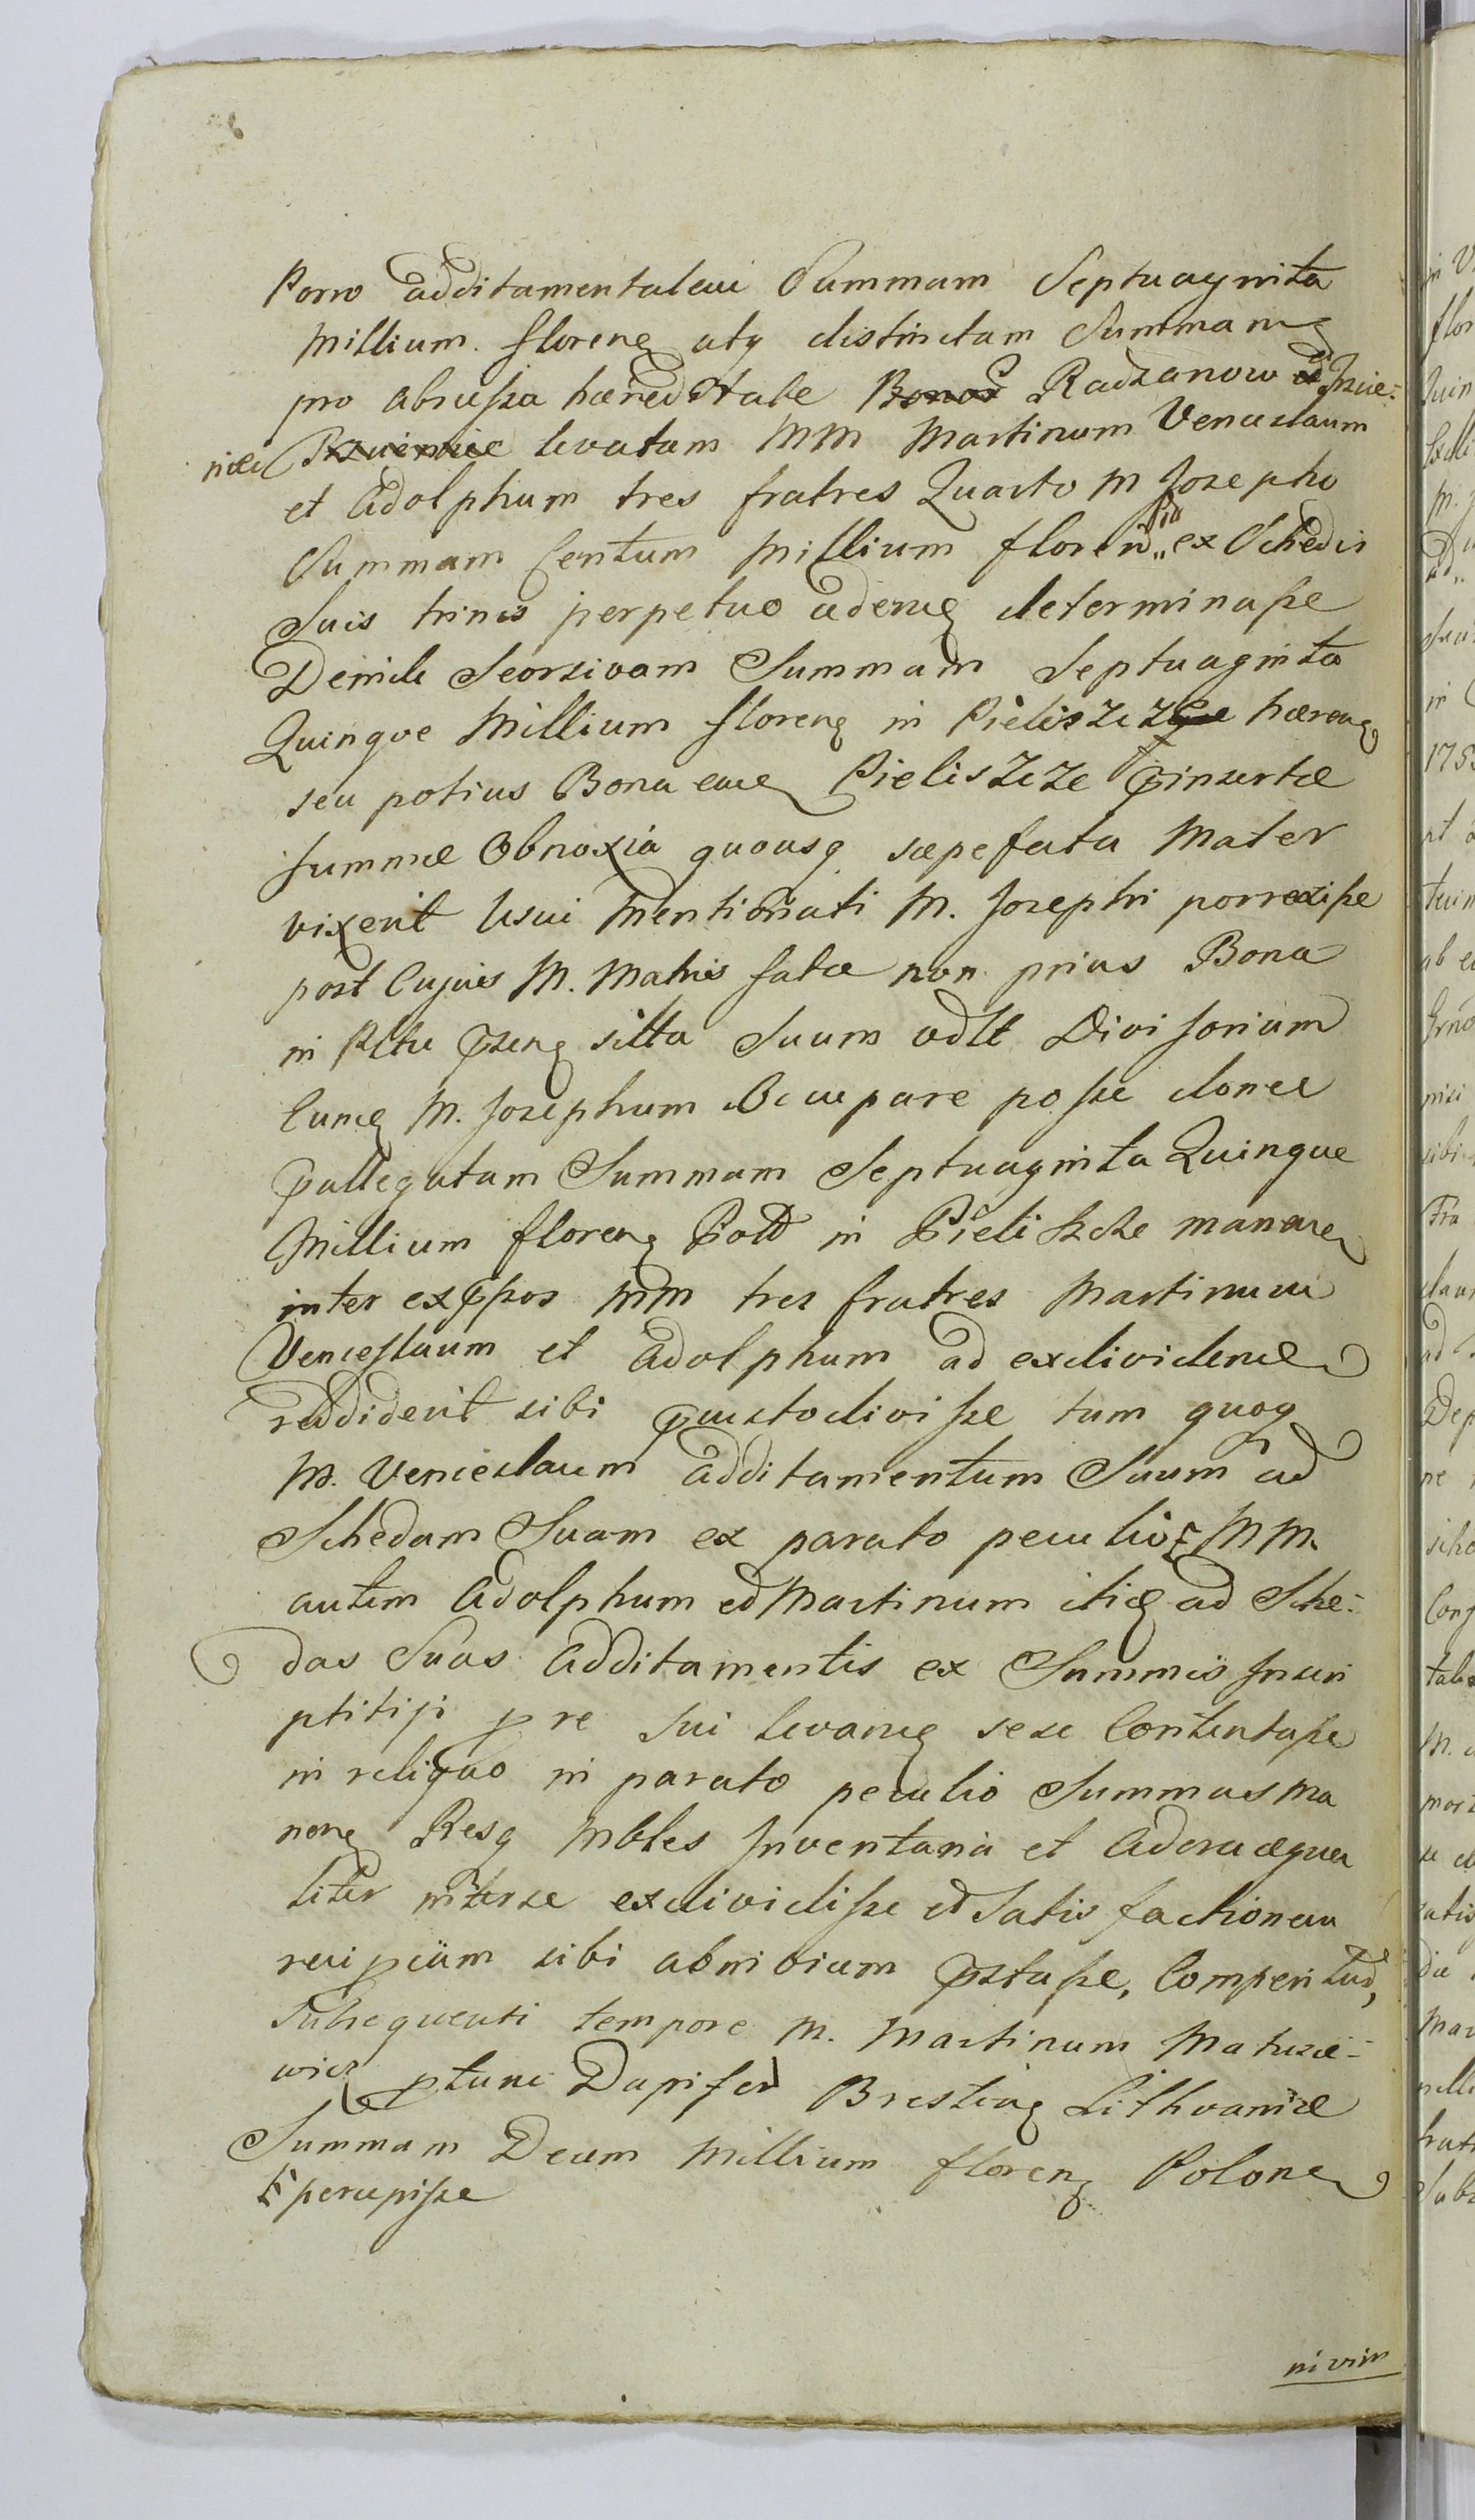 Porro additamentalem Summam Septuaginta
Millium floreng atq distinctam Summam
pro abrussa haereditate Bonor Radzanow et Jzwie-
nice Bzwienice levatam MM Martinum Venceslaum
et Adolphum tres fratres Quarto M Josepho
Summam Centum Millium floren Pol ex Schedis
Suis trinis perpetuo ademq determinasse
Deinde Seorsivam Summam Septuaginta
Quinque Millium floreng in Pieliszcze haereng
seu potius Bona eaeq Pieliszcze pinsertae
summae Obnoxia quousq saepefata Mater
vixerit Usui mentionati M. Josephi porrexisse
post Cujus M. Matris fata non prius Bona
in Pttu pzeng sitta Suum vdlt Divisorium
Cunq M. Josephum Occupare posse donec
pallegatam Summam Septuaginta Quinque
Millium floreng Pold in Pieliszcze manenq
inter exppsos MM tres fratres Martinum
Venceslaum et Adolphum ad exdividend
reddiderit sibi pcustodivisse tum quoq
M. Venceslaum additamentum Suum ad
Schedam Suam ex parato peculio MM.
autem Adolphum et Martinum itiq ad Sche-
das Suas Additamentis ex Summis Inscri
ptitiji p re sui levanq sese Contentasse
in reliquo in parato peculio Summas ma
neng Resq Mbles Inventaria et Adera aequa
liter inter se exdividisse et Satisfactionem
recipcüam sibi abinvicem pstasse, Comperitur,
Subsequenti tempore M. Martinum Matusze-
wicz ptunc Dapifer Bresteng Lithvaniae
Summam Decem Millium floreng Polone
percepisse
nivim